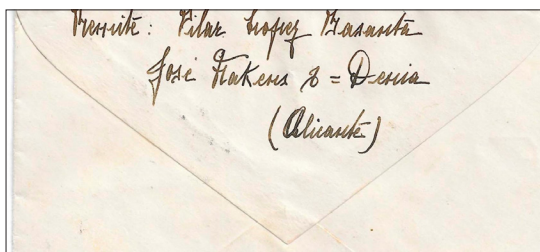 Remite: Pilar Lopez Basanta
José Flakens 8 = Denia
(Alicante)